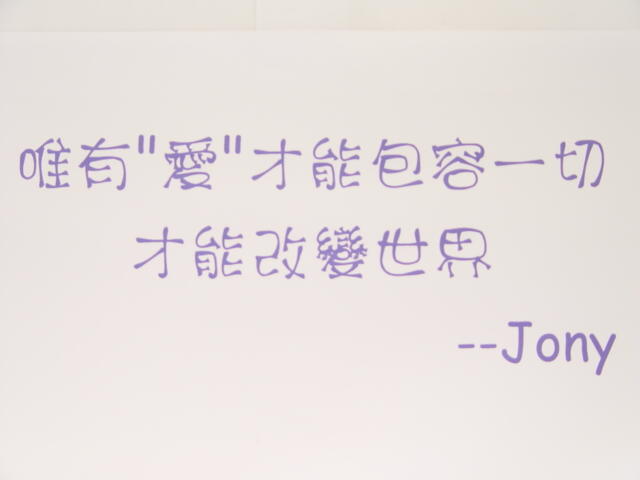 唯有"愛"才能包容一切
才能改變世界
--Jony